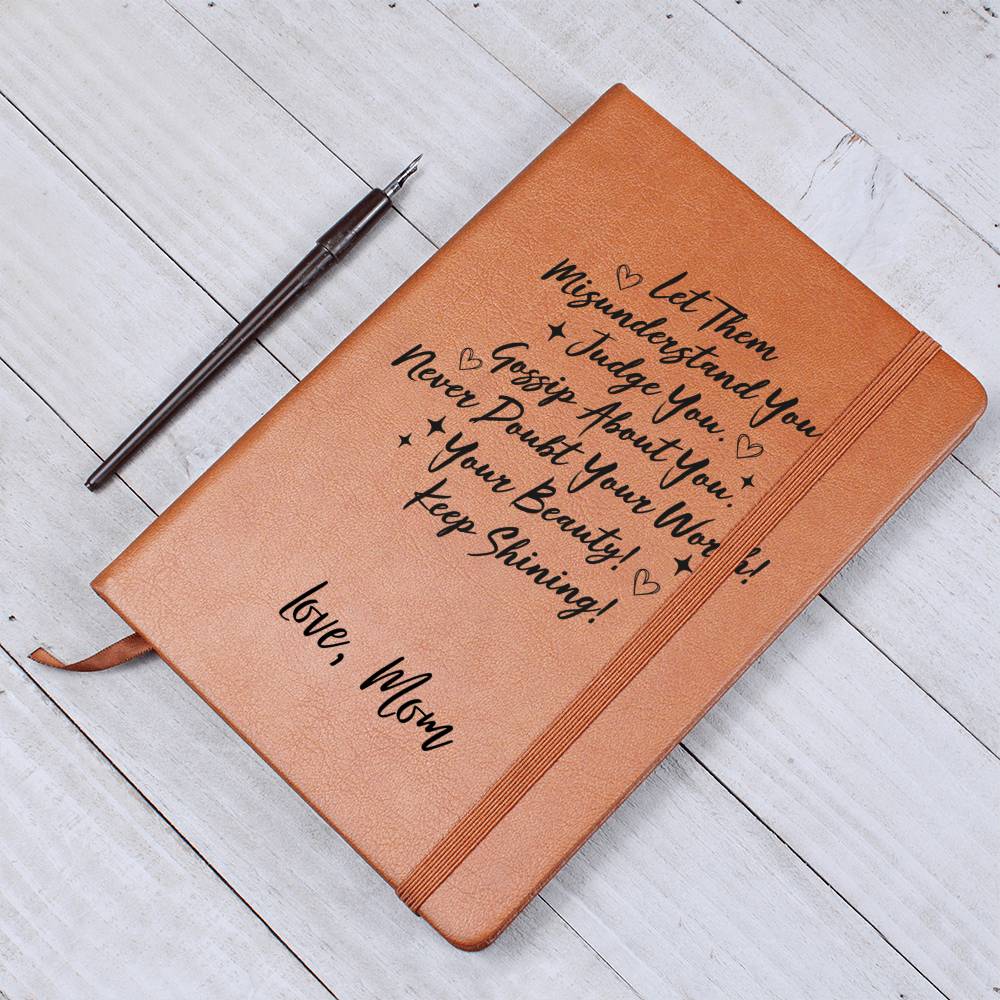 Let Them
Misunderstand You
Judge You.
Gossip About You.
Never Doubt Your Worth!
Your Beauty!
Keep Shining!
Love, Mom